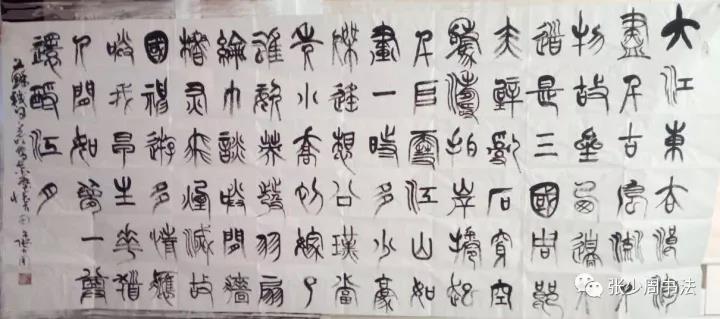 大江東去浪淘
盡千古風流人
物故壘西邊人
道是三國周郎
赤壁亂石穿空
驚濤拍岸捲起
千堆雪江山如
畫一時多少豪
傑遙想公瑾當
年小喬初嫁了
雄姿英發羽扇
綸巾談笑間檣
櫓灰飛煙滅故
國神遊多情應
笑我早生華髮
人間如夢一尊
還酹江月
蘇軾詞
张少周书法